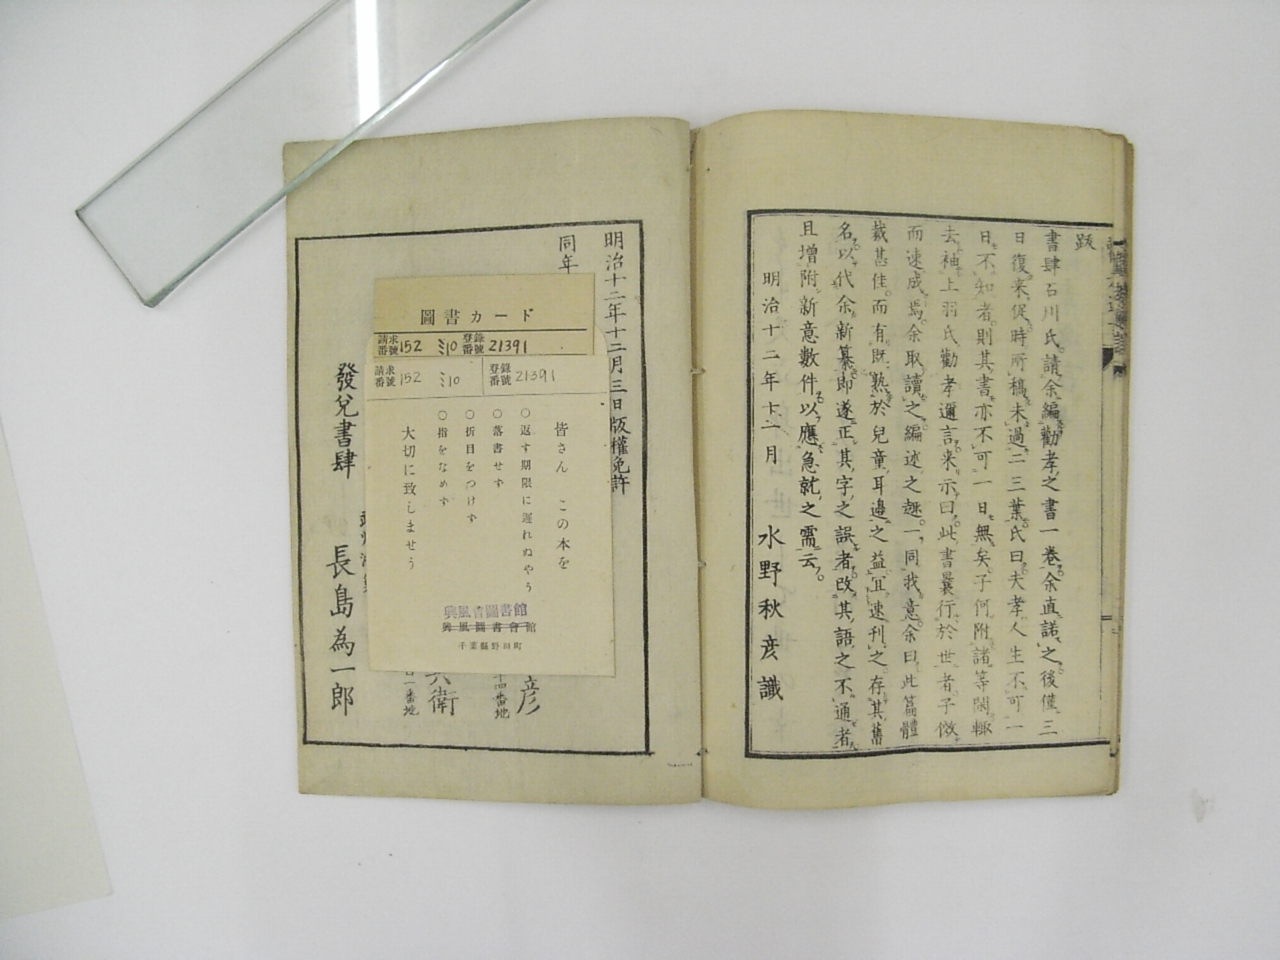 跋
書肆石川氏請余編勸孝之書一卷余直諾之後僅三
日復来促時所稿未過二三葉氏曰夫孝人生不可一
日不知者則其書亦不可一日無矣子何附諸等閑輙
去袖上羽氏勸孝邇言来示曰此書曩行於世者子倣
而速成焉余取讀之編述之趣一同我意余曰此篇體
裁甚佳而有既熟於兒童耳邊之益宜速刊之存其舊
名以代余新纂即遂正其字之誤者改其語之不通者
且增附新意數件以應急就之需云
明治十二年十一月 水野秋彦識
明治十二年十二月三日版權免許
同年
彦
十四番地
兵衛
一番地
發兌書肆
長島為一郎
圖書カード
請求番號 152 ミ10 登錄番號 21391
請求番號 152 ミ10 登錄番號 21391
皆さん この本を
○返す期限に遅れぬやう
○落書せず
○折目をつけず
○指をなめず
大切に致しませう
興風會圖書館
興風圖書會館
千葉縣野田町